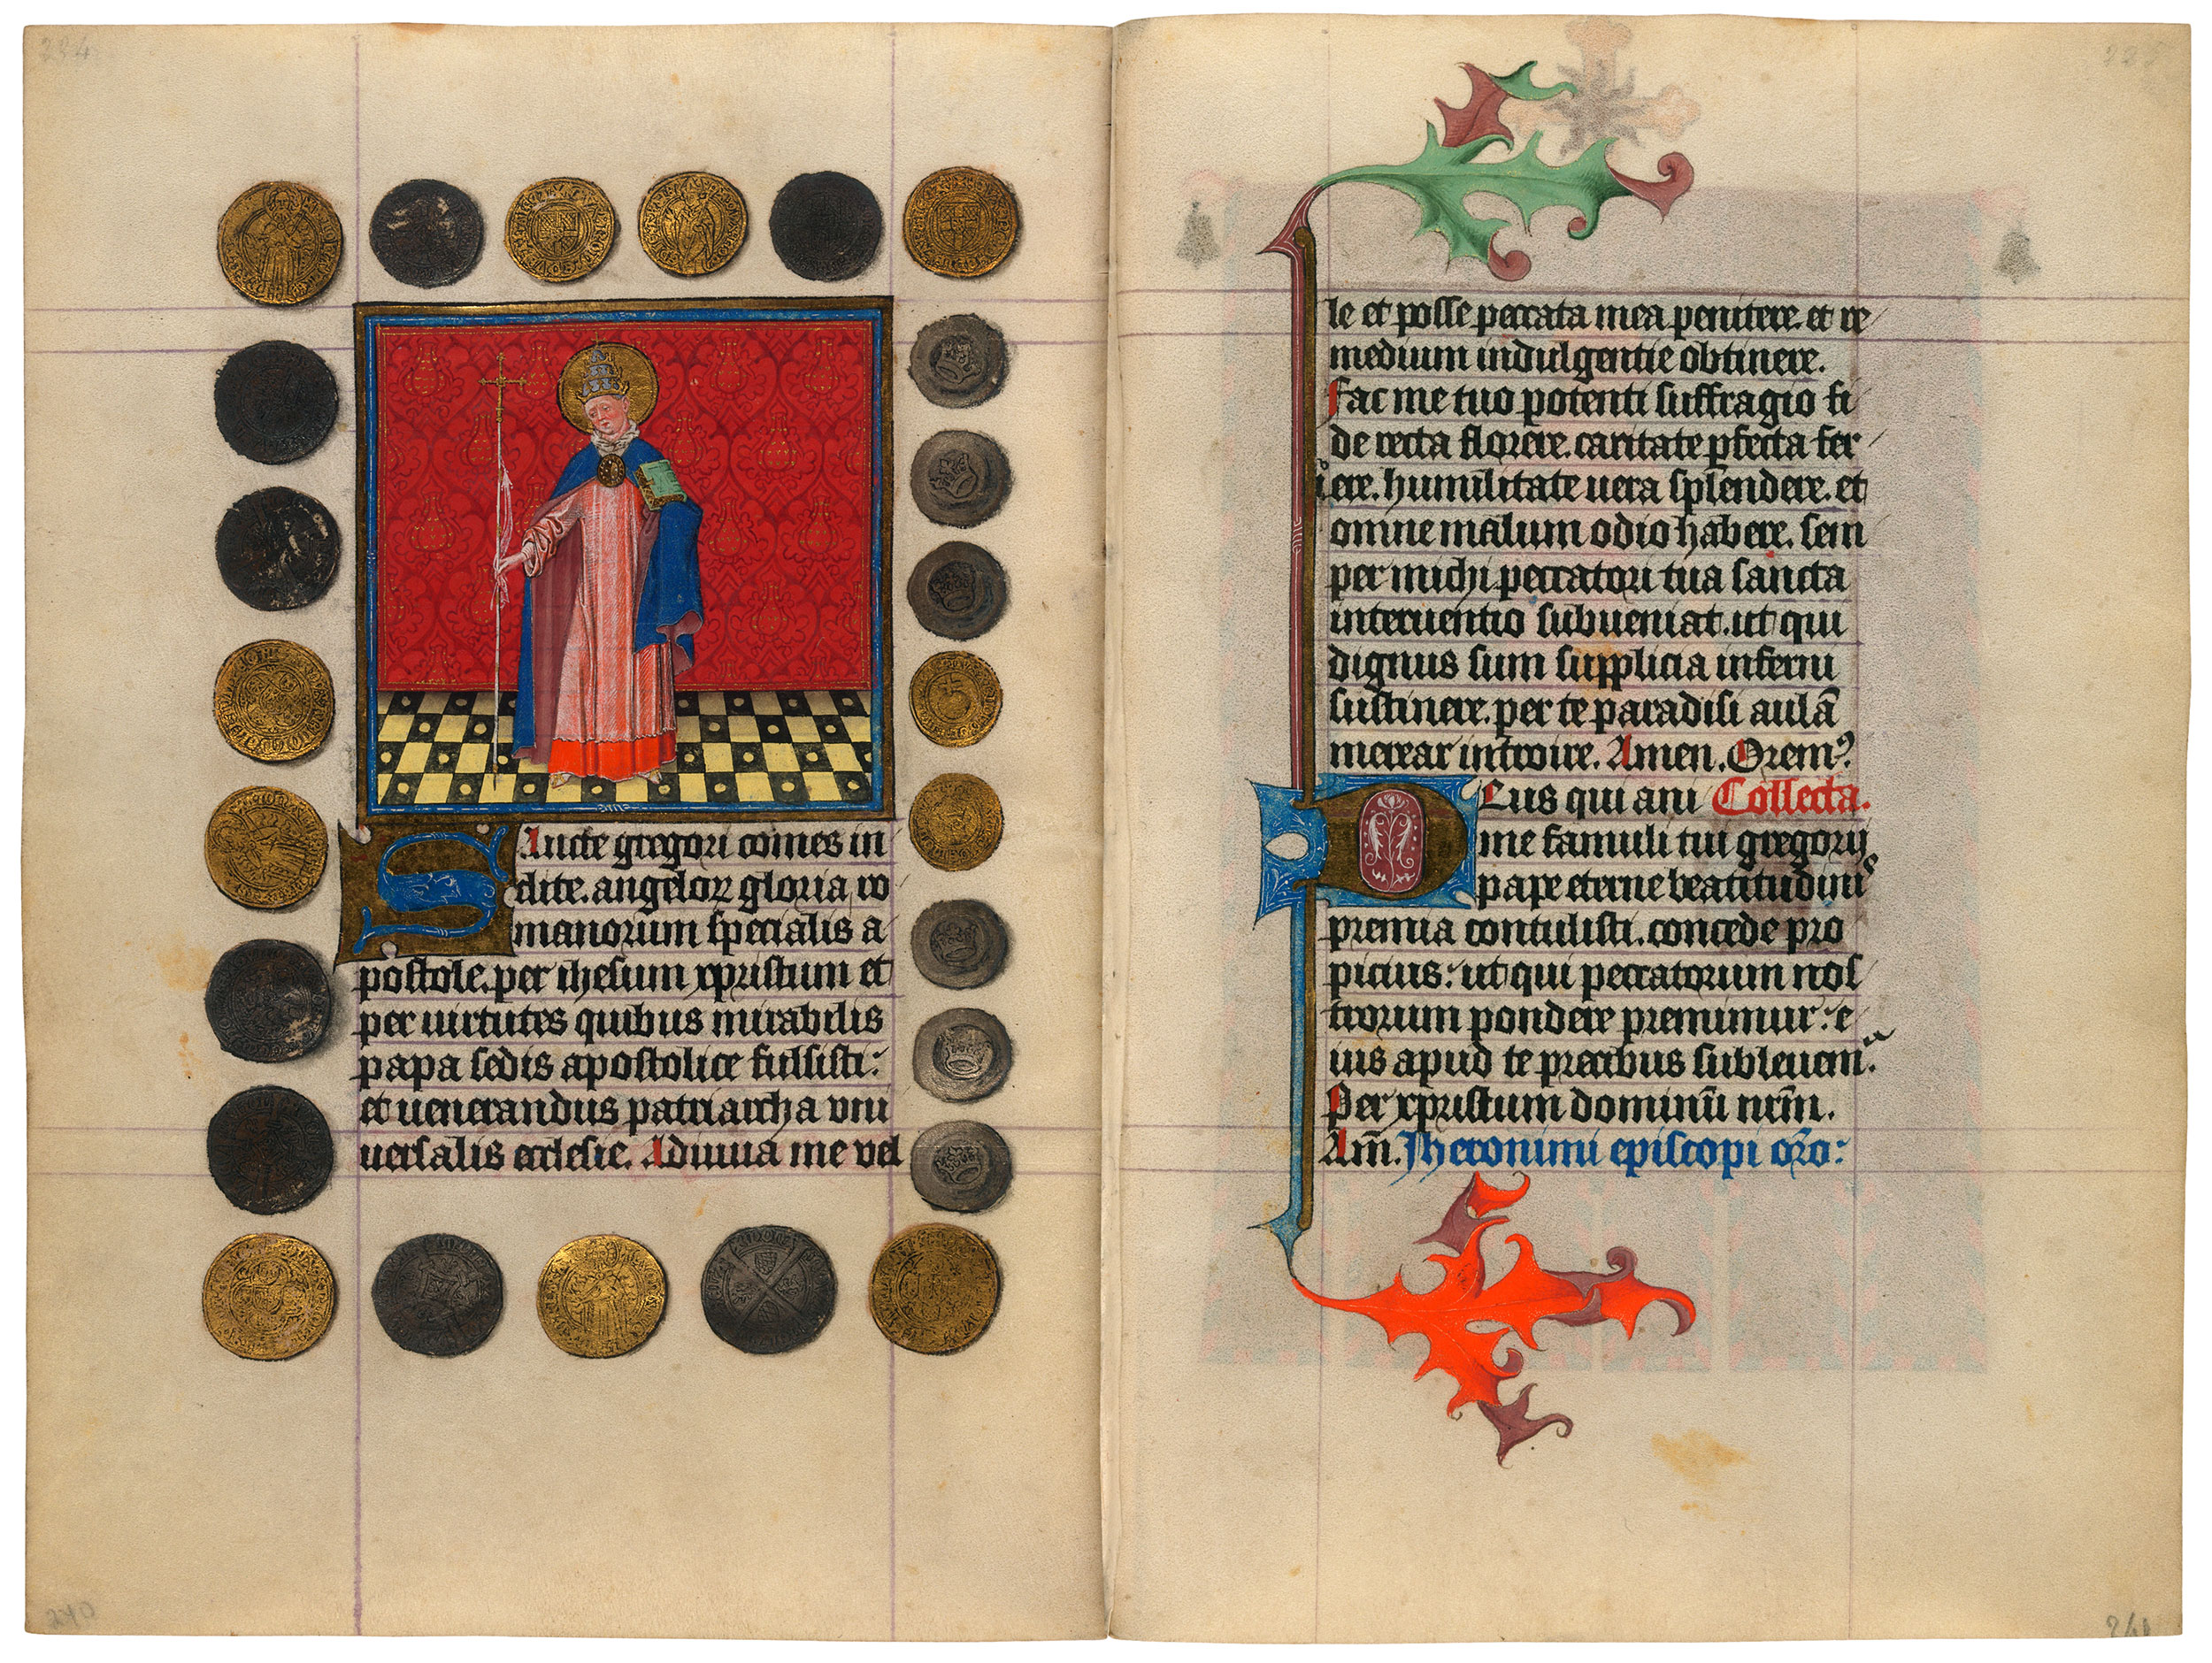 234
Sancte gregori comes in
clite. angeloꝝ gloria, ro
manorum specialis a
postole. per ihesum xpristum et
per uirtutes quibus mirabilis
papa sedis apostolice fulsisti:
et uenerandus patriarcha vni
uersalis ecclesie. Adiuua me vel
240
le et posse peccata mea penitere. et re
medium indulgentie obtinere.
Fac me tuo potenti suffragio fi
de recta florere. caritate pfecta fer
uere. humilitate uera splendere. et
omne malum odio habere. sem
per michi peccatori tua sancta
interuentio subueniat. ut qui
dignus sum supplicia inferni
sustinere. per te paradisi aulā
merear introire. Amen. Oremꝰ.
Deus qui ani Collecta.
me famuli tui gregorij
pape eterne beatitudinis
premia contulisti. concede pro
picius: ut qui peccatorum nos
trorum pondere premimur: e
ius apud te precibus subleuemᵃ.
Per xpristum dominū nr̄m.
Am̄. Jheronimi episcopi or̄o:
241